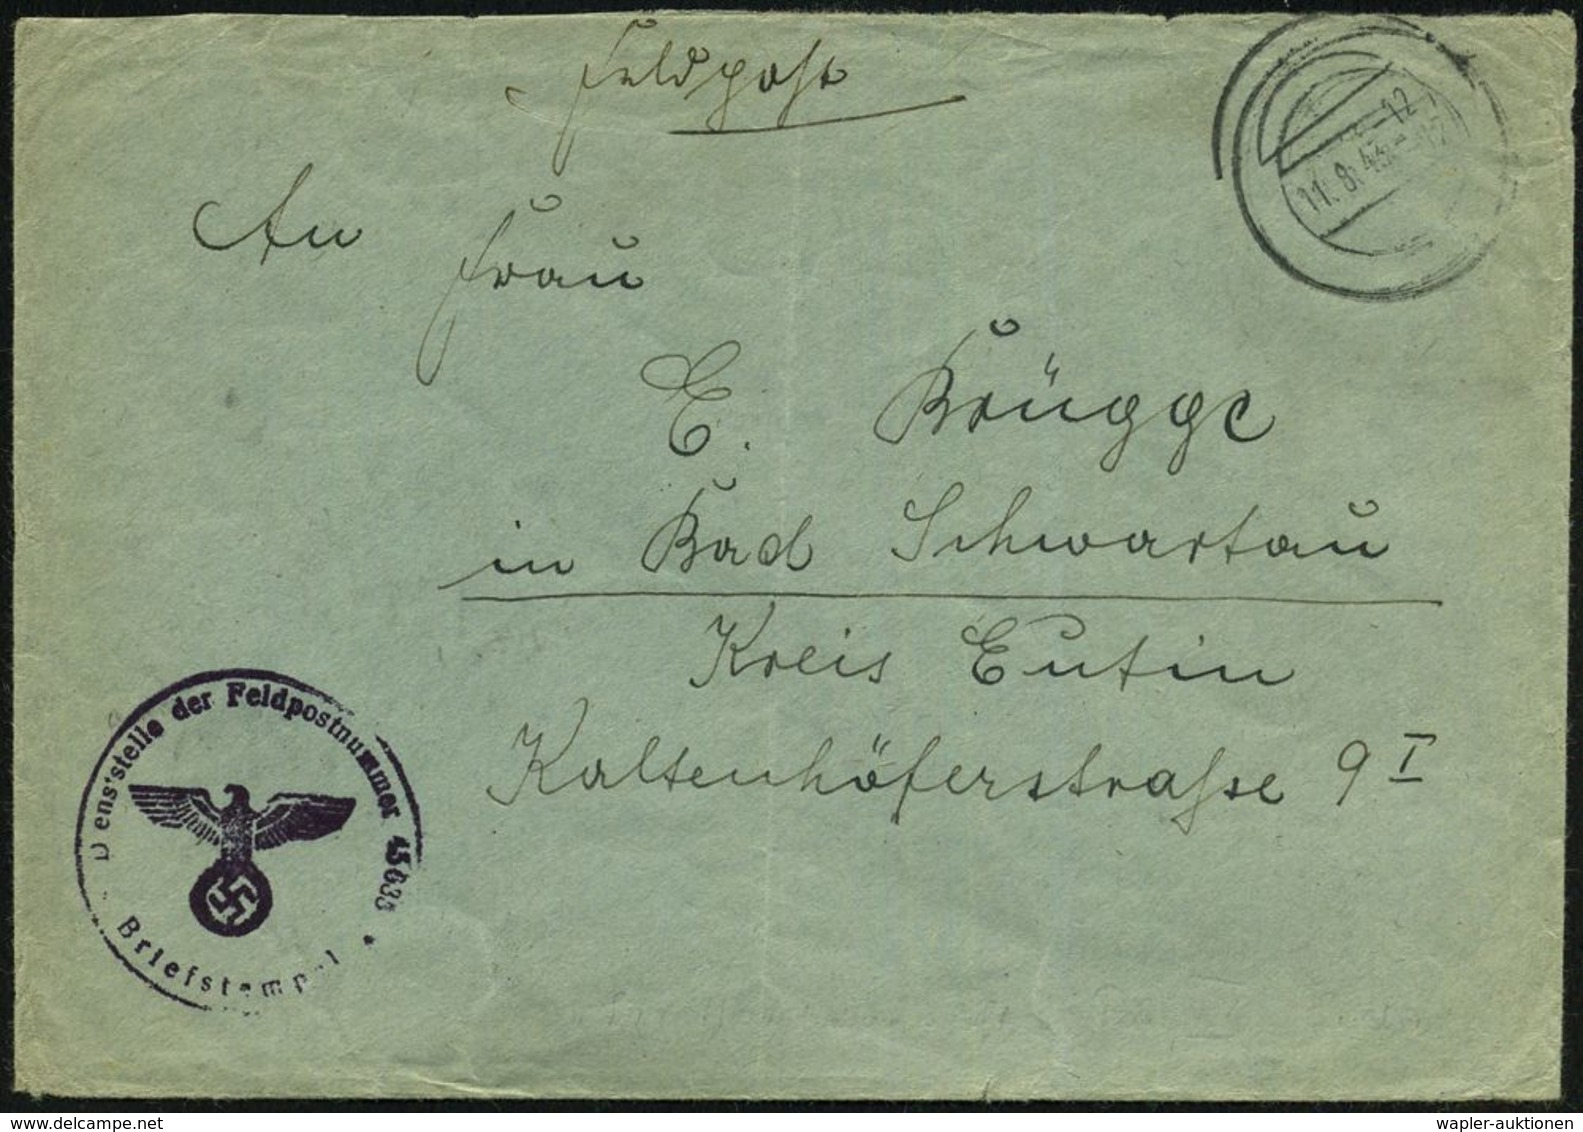 Feldpost
11.8.43.-12
An
Frau
E. Brügge
in Bad Schwartau
Kreis Eutin
Kaltenhöferstraße 9 I
Dienststelle der Feldpostnummer
Briefstempel
wapler-auktionen
delcampe.net